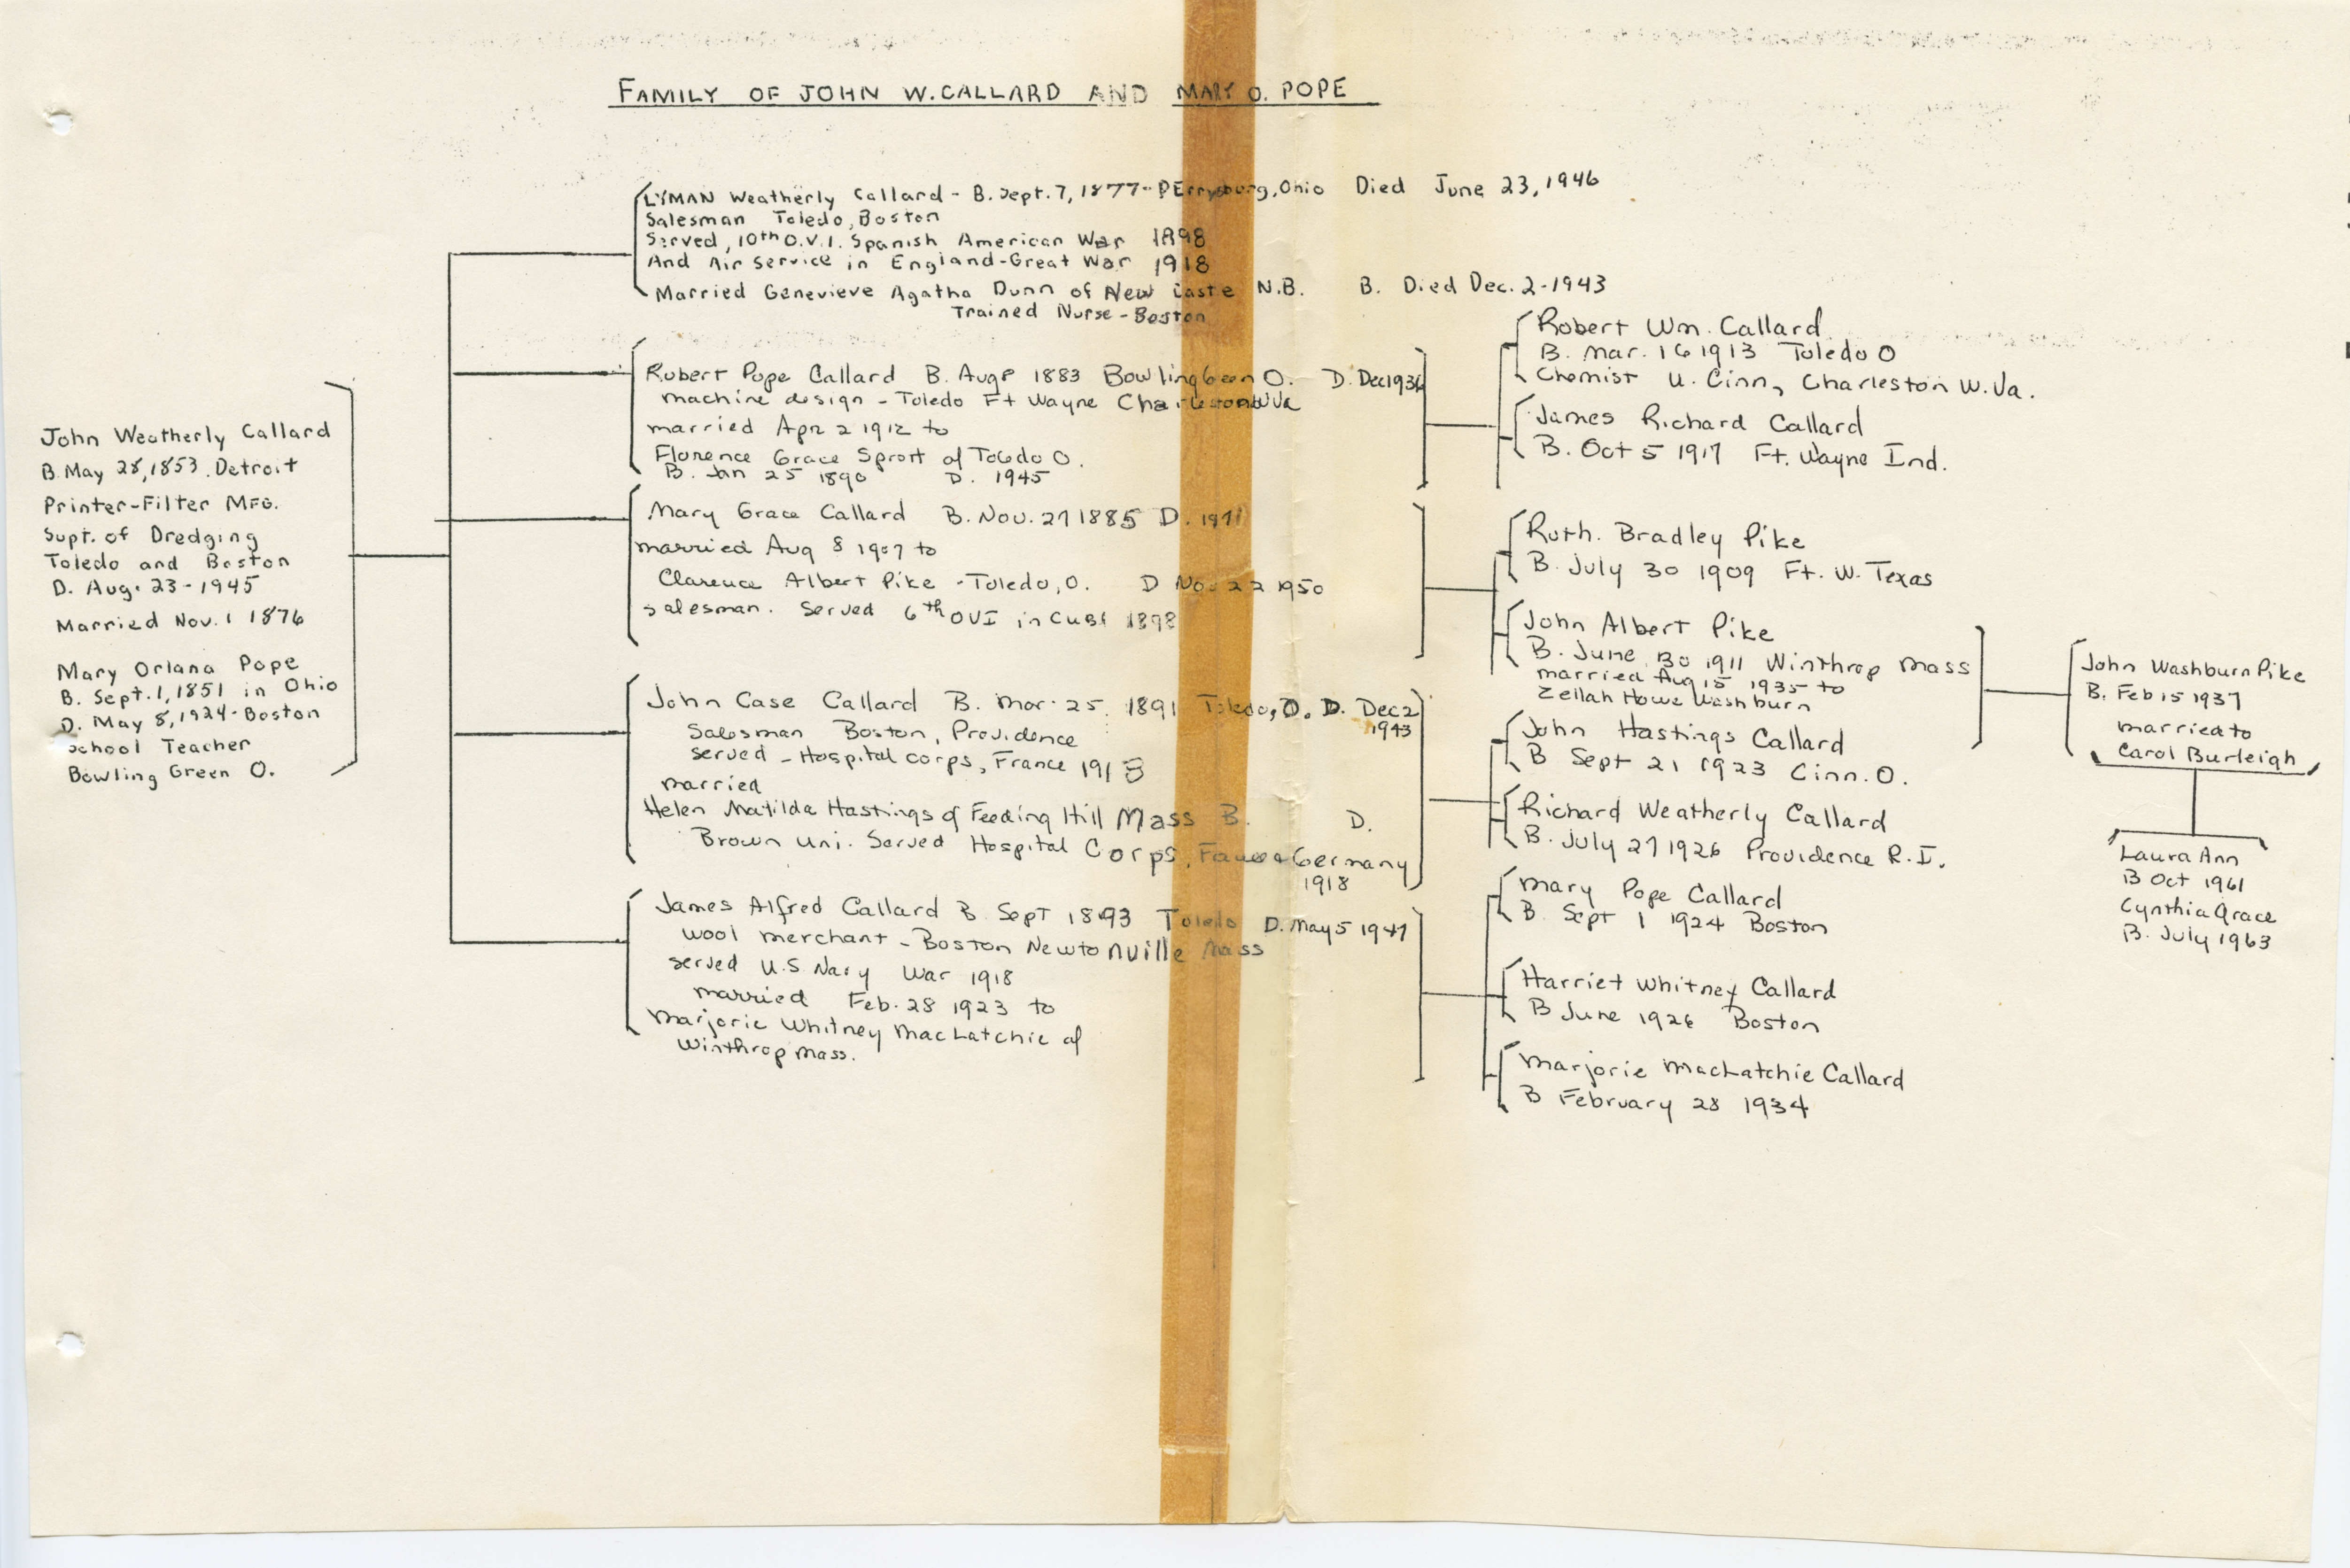 FAMILY OF JOHN W. CALLARD AND MARY O. POPE
John Weatherly Callard
B. May 28, 1853. Detroit
Printer-Filter MFG.
Supt. of Dredging
Toledo and Boston
D. Aug. 23-1945
Married Nov. 1 1876
Mary Orlana Pope
B. Sept. 1, 1851 in Ohio
D. May 8, 1924-Boston
School Teacher
Bowling Green O.
LYMAN Weatherly Callard - B. Sept. 7, 1877-PErrysburg, Ohio Died June 23, 1946
Salesman Toledo, Boston
Served, 10th O.V.I. Spanish American War 1898
And Air Service in England-Great War 1918
Married Genevieve Agatha Dunn of New Caste N.B. B. Died Dec. 2-1943
Trained Nurse-Boston
Robert Pope Callard B. Aug 8 1883 Bowling Green O. D. Dec 1936
machine design - Toledo Ft Wayne Charleston W Va
married Apr 2 1912 to
Florence Grace Sprort of Toledo O.
B. Jan 25 1890 D. 1945
Mary Grace Callard B. Nov. 27 1885 D. 1971
married Aug 8 1907 to
Clarence Albert Pike - Toledo, O. D Nov 22 1950
salesman. Served 6th OVI in Cuba 1898
John Case Callard B. Mar. 25. 1891 Toledo, O. D. Dec 2
1943
Salesman Boston, Providence
served - Hospital corps, France 1918
married
Helen Matilda Hastings of Feeding Hill Mass B. D.
Brown Uni. Served Hospital Corps, Germany
1918
James Alfred Callard B Sept 1893 Toledo D. May 5 1947
wool merchant - Boston Newtonville Mass
served U.S. Navy War 1918
married Feb. 28 1923 to
Marjorie Whitney MacLatchie of
Winthrop Mass.
Robert Wm. Callard
B. Mar. 16 1913 Toledo O
Chemist U. Cinn, Charleston W. Va.
James Richard Callard
B. Oct 5 1917 Ft. Wayne Ind.
Ruth. Bradley Pike
B. July 30 1909 Ft. W. Texas
John Albert Pike
B. June 30 1911 Winthrop Mass
married Aug 15 1935 to
Zellah Howe Washburn
John Hastings Callard
B Sept 21 1923 Cinn. O.
Richard Weatherly Callard
B. July 27 1926 Providence R.I.
Mary Pope Callard
B. Sept 1 1924 Boston
Harriet Whitney Callard
B June 1926 Boston
Marjorie MacLatchie Callard
B February 28 1934
John Washburn Pike
B. Feb 15 1937
married to
Carol Burleigh
Laura Ann
B Oct 1961
Cynthia Grace
B. July 1963